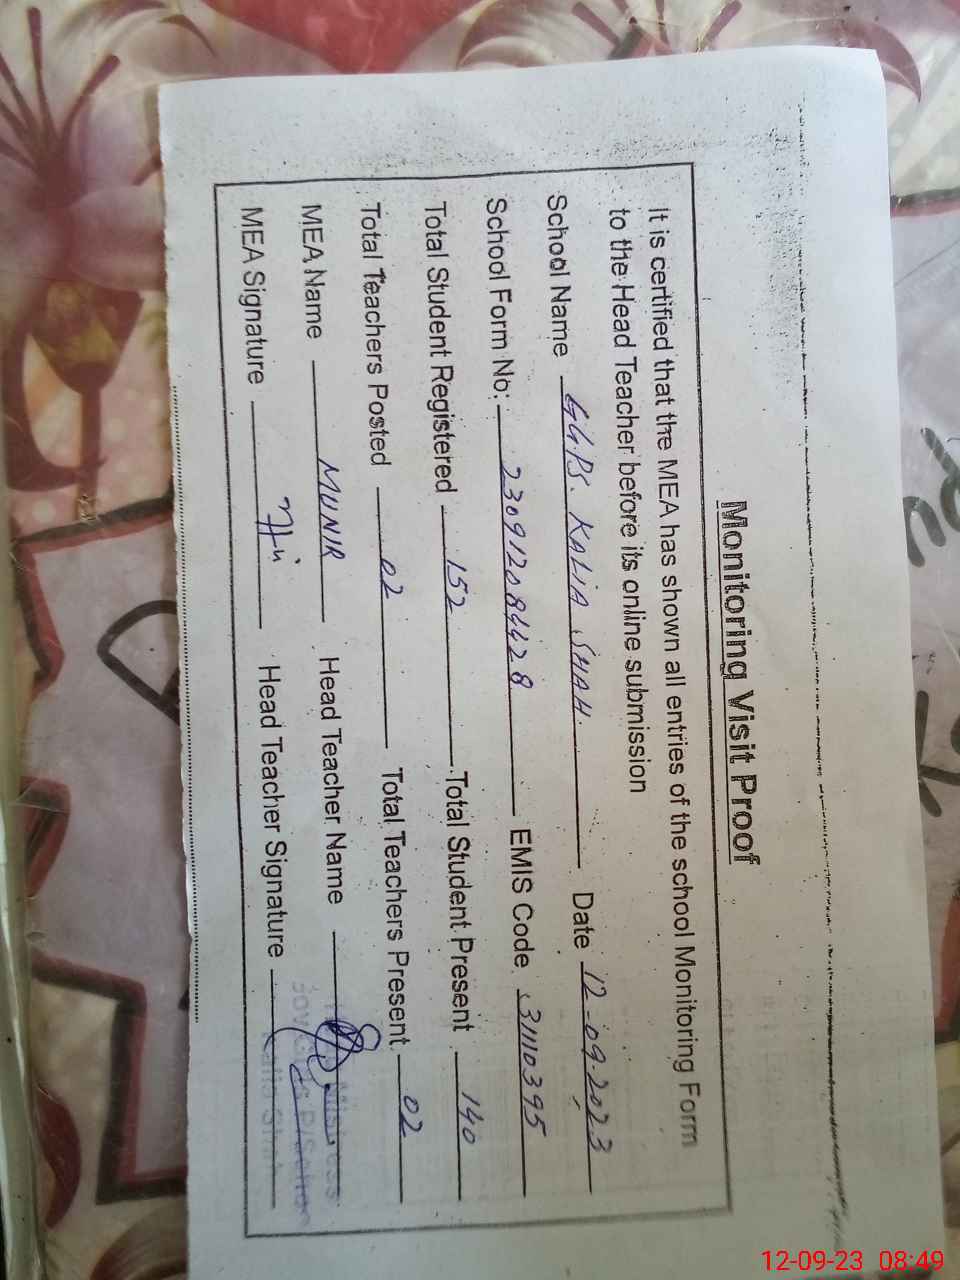 Monitoring Visit Proof
It is certified that the MEA has shown all entries of the school Monitoring Form
to the Head Teacher before its online submission
School Name G.G.P.S. KALIA SHAH. Date 12-09-2023
School Form No: 230912084428 EMIS Code 31110395
Total Student Registered 152 Total Student Present 140
Total Teachers Posted 02 Total Teachers Present 02
MEA Name MUNIR Head Teacher Name
MEA Signature Head Teacher Signature
Head Mistress
Kalia Shah
12-09-23 08:49